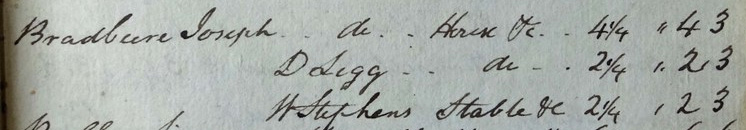 Bradbeere Joseph . . do . . House &c . . 4 1/4 " 4 3
D Legg . . do . . 2 1/4 " 2 3
W Stephens Stable &c 2 1/4 " 2 3